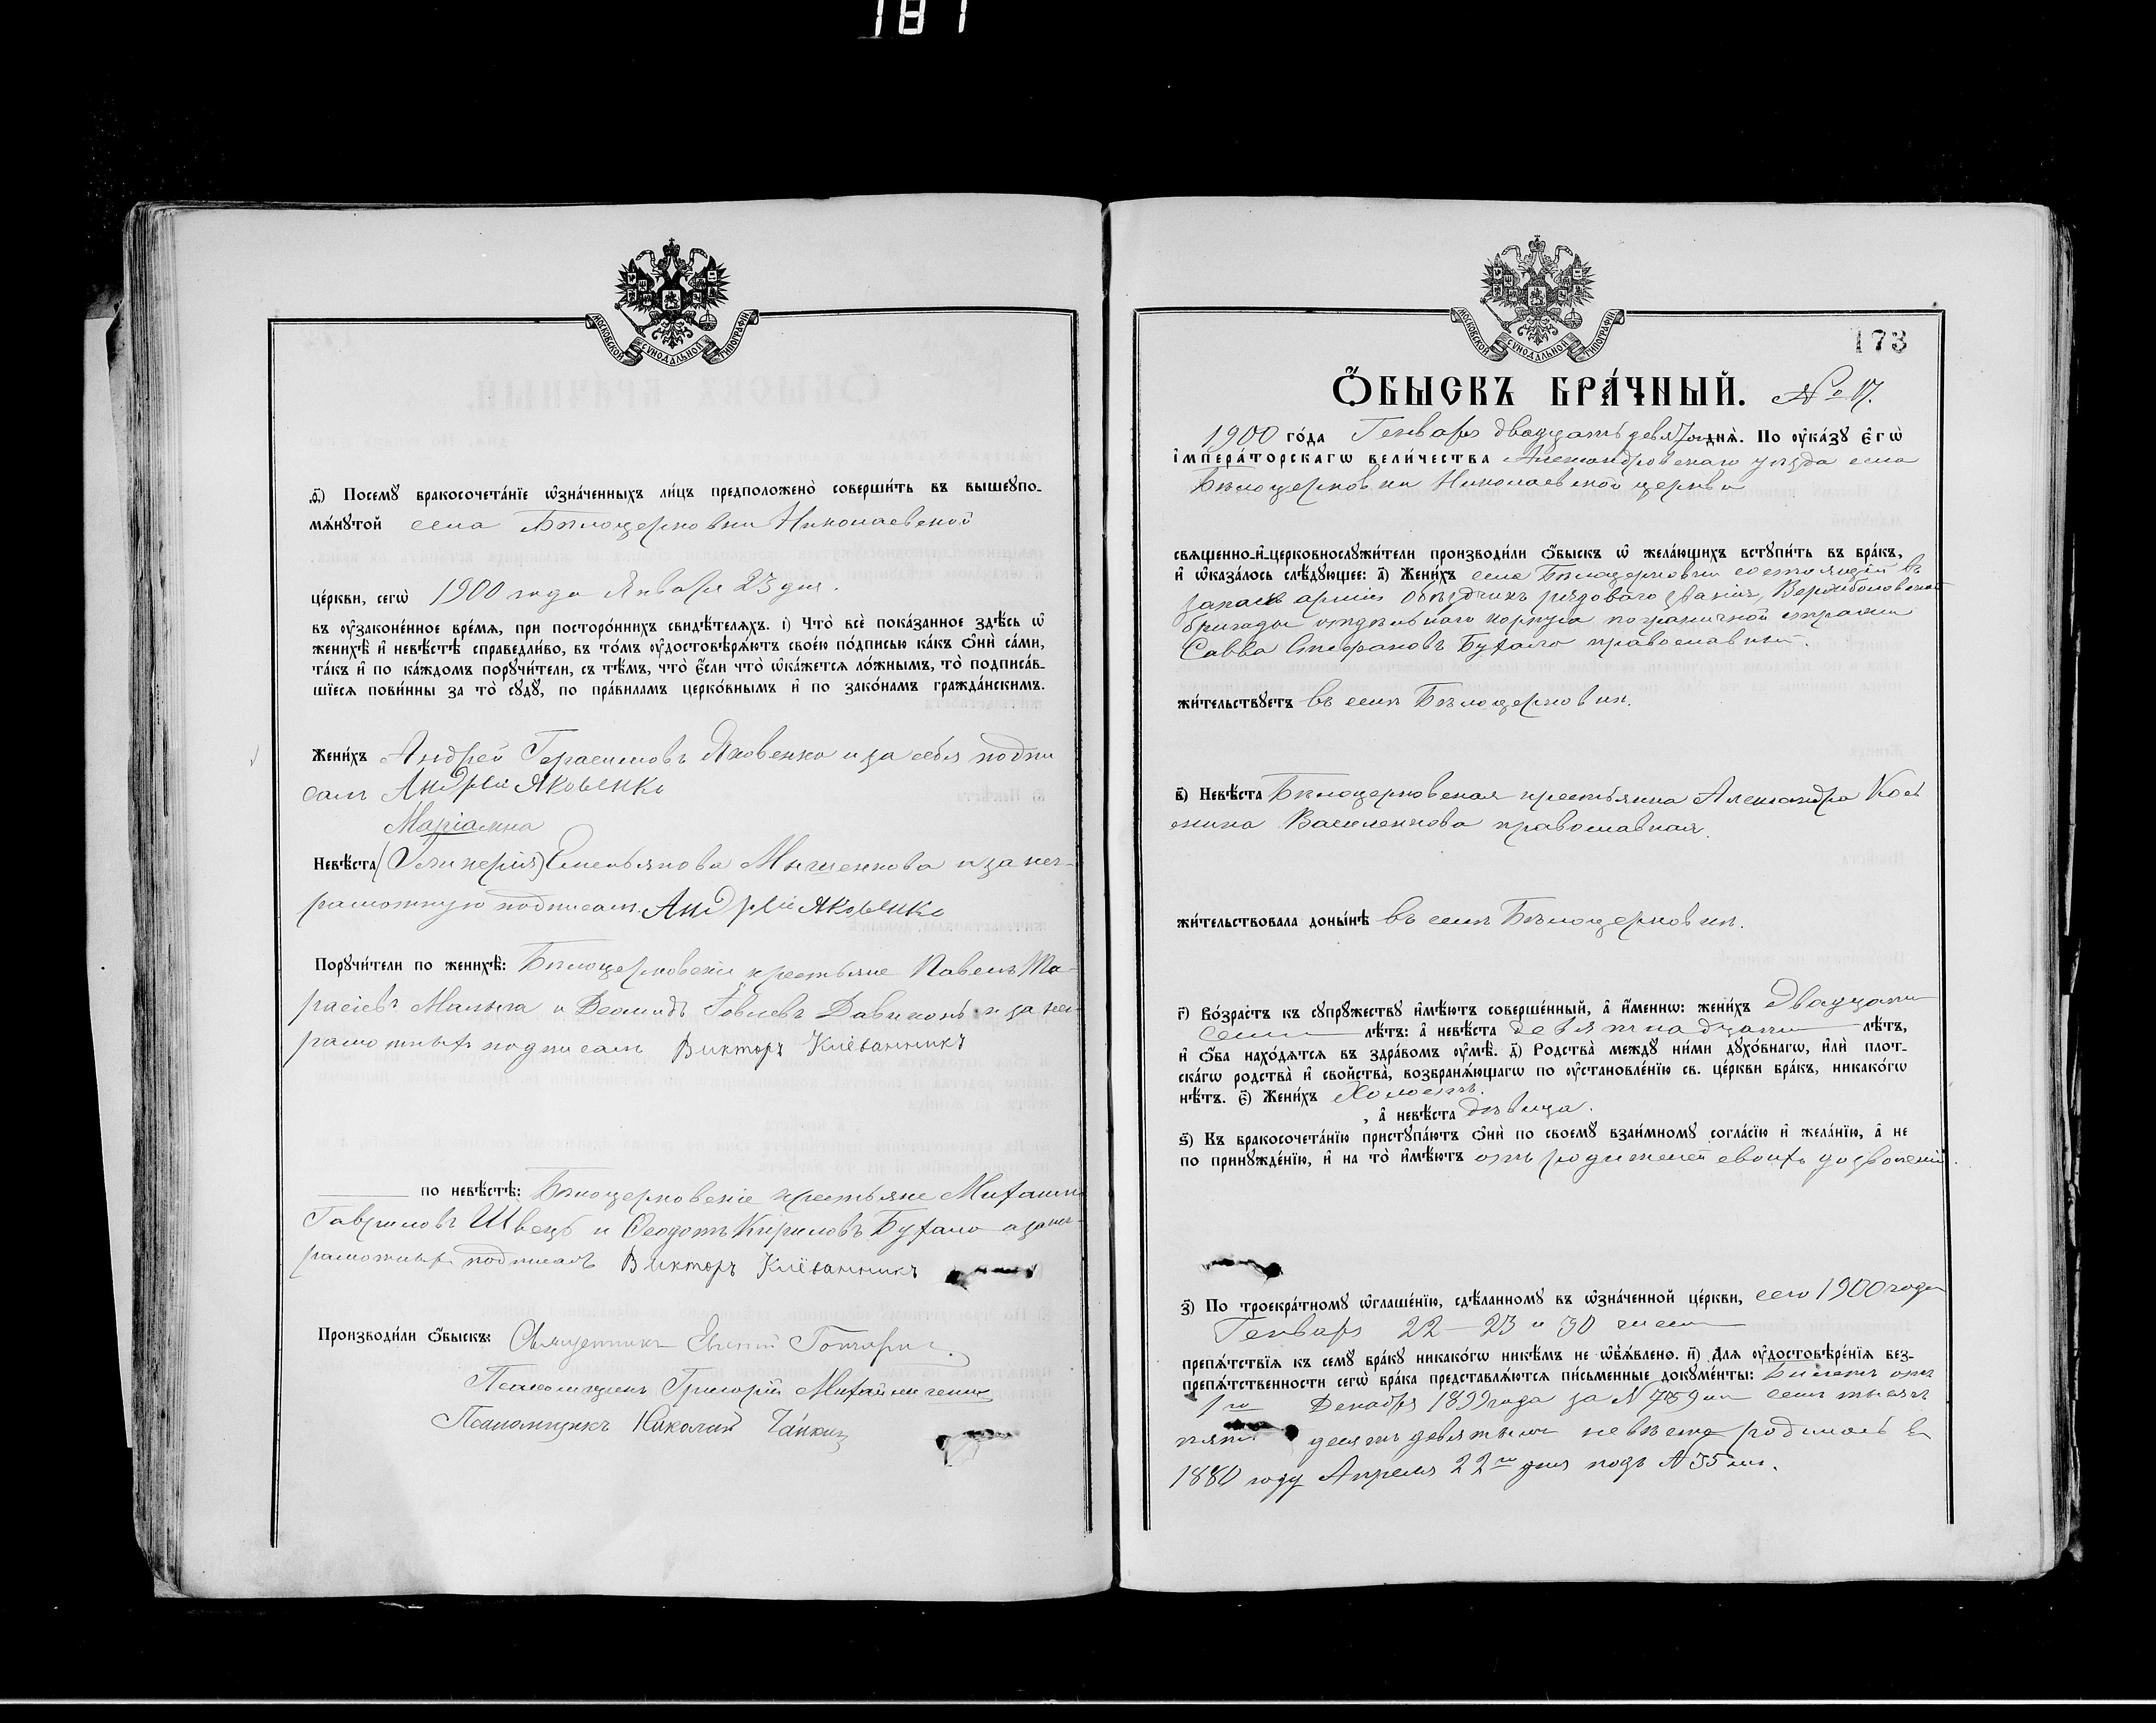 181
МОСКОВСКОЙ СѴНОДАЛЬНОЙ ТИПОГРАФІИ
ѳ҃) Посемꙋ̀ бракосочета́нїе ѡ҆зна́ченныхъ ли́цъ предположено̀ соверши́ть въ вышеꙋпо-
мѧ́нꙋтой села Бѣлоцерковки Николаевской
це́ркви, сегѡ̀ 1900 года Января 23 дня.
въ ᲂу҆зако́ненное вре́мѧ, при посторо́ннихъ свидѣ́телѧхъ. і҃) Что̀ всѐ пока́занное здѣ́сь ѡ҆
женихѣ̀ и҆ невѣ́стѣ справедли́во, въ то́мъ ᲂу҆достовѣрѧ́ютъ свое́ю по́дписью ка́къ ѻ҆нѝ са́ми,
та́къ и҆ по ка́ждомъ порꙋчи́тели, съ тѣ́мъ, что̀ є҆́сли что̀ ѡ҆ка́жетсѧ ло́жнымъ, то̀ подписа́в-
шїесѧ пови́нны за то̀ сꙋдꙋ̀, по пра́виламъ церко́внымъ и҆ по зако́намъ гражда́нскимъ.
Жени́хъ Андрей Герасимовъ Яковенко и за себя подпи
салъ Андрей Яковенко
Маріамна
Невѣ́ста (Гликерія) Емельянова Мищенкова и за нег-
рамотную подписалъ Андрей Яковенко
Порꙋчи́тели по женихѣ̀: Бѣлоцерковскіе крестьяне Павелъ Та-
расіевъ Малыга и Деомидъ Іовлевъ и за нег-
рамотныхъ подписалъ Викторъ Кліованникъ
по невѣ́стѣ: Бѣлоцерковскіе крестьяне Михаилъ
Гавриловъ Швецъ и Ѳеодотъ Кириловъ Бухало и за нег-
рамотныхъ подписалъ Викторъ Кліованникъ
Производи́ли ѻ҆́быскъ: Священникъ
Псаломщикъ Григорій
Псаломщикъ Николай
МОСКОВСКОЙ СѴНОДАЛЬНОЙ ТИПОГРАФІИ
173
Ѻ҆́БЫСКЪ БРА́ЧНЫЙ. № 17.
1900 го́да Генваря двадцать девятого днѧ̀. По ᲂу҆ка́зꙋ є҆гѡ̀
і҆мпера́торскагѡ вели́чества Александровскаго уѣзда села
Бѣлоцерковки Николаевской церкви
свѧщенно-и҆-церковнослꙋжи́тели производи́ли ѻ҆́быскъ ѡ҆ жела́ющихъ встꙋпи́ть въ бра́къ,
и҆ ѡ҆каза́лось слѣ́дꙋющее: а҃) Жени́хъ села Бѣлоцерковки состоящій въ
запасѣ арміи объѣздчикъ рядоваго званія, Вержболовской
бригады отдѣльнаго корпуса пограничной стражи
Савва Стефановъ Бухало православный.
жи́тельствꙋетъ въ селѣ Бѣлоцерковкѣ.
в҃) Невѣ́ста Бѣлоцерковская крестьянка Александра Кос
мина Василенкова православная.
жи́тельствовала доны́нѣ въ селѣ Бѣлоцерковкѣ.
г҃) Во́зрастъ къ сꙋпрꙋ́жествꙋ и҆мѣ́ютъ соверше́нный, а҆ и҆́меннѡ: жени́хъ двадцати
семи лѣ́тъ: а҆ невѣ́ста девятнадцати лѣ́тъ,
и҆ ѻ҆́ба нахо́дѧтсѧ въ здра́вомъ ᲂу҆мѣ̀. д҃) Родства̀ междꙋ̀ ни́ми дꙋхо́внагѡ, и҆лѝ плот-
ска́гѡ родства̀ и҆ сво́йства, возбранѧ́ющагѡ по ᲂу҆становле́нїю св. це́ркви бра́къ, никако́гѡ
нѣ́тъ. є҃) Жени́хъ Холостъ.
, а҆ невѣ́ста дѣвица.
ѕ҃) Къ бракосочета́нїю пристꙋпа́ютъ ѻ҆нѝ по своемꙋ̀ взаи́мномꙋ согла́сїю и҆ жела́нїю, а҆ не
по принꙋжде́нїю, и҆ на то̀ и҆мѣ́ютъ отъ родителей своихъ дозволеніе.
з҃) По троекра́тномꙋ ѡ҆глаше́нїю, сдѣ́ланномꙋ въ ѡ҆зна́ченной це́ркви, сего 1900 года
Генваря 22 – 23 и 30 числа
препѧ́тствїѧ къ семꙋ̀ бра́кꙋ никако́гѡ никѣ́мъ не ѡ҆б̾ѧ́влено. и҃) Длѧ ᲂу҆достовѣре́нїѧ без-
препѧ́тственности сегѡ̀ бра́ка представлѧ́ютсѧ пи́сьменные докꙋме́нты: билетъ отъ
1го Декабря 1899 года за № 7059 мъ семь тысячъ
пять десятъ девятымъ невѣста родилась въ
1880 году Апреля 22го дня подъ № 55 мъ.